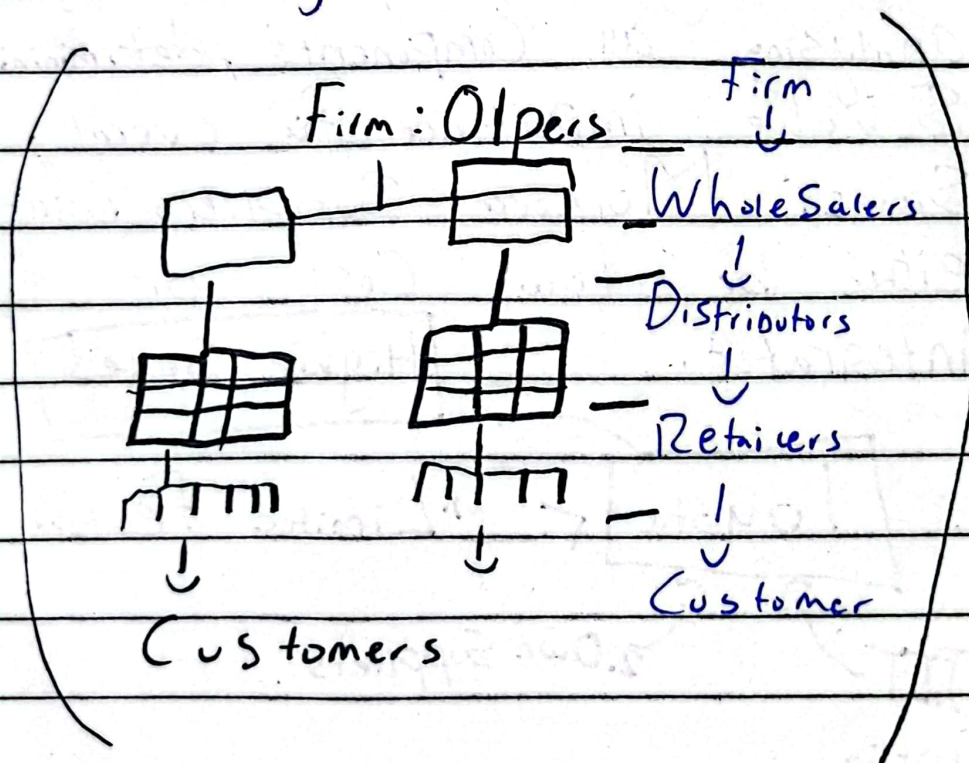 Firm : Olpers
Customers
Firm
WholeSalers
Distributors
Retailers
Customer